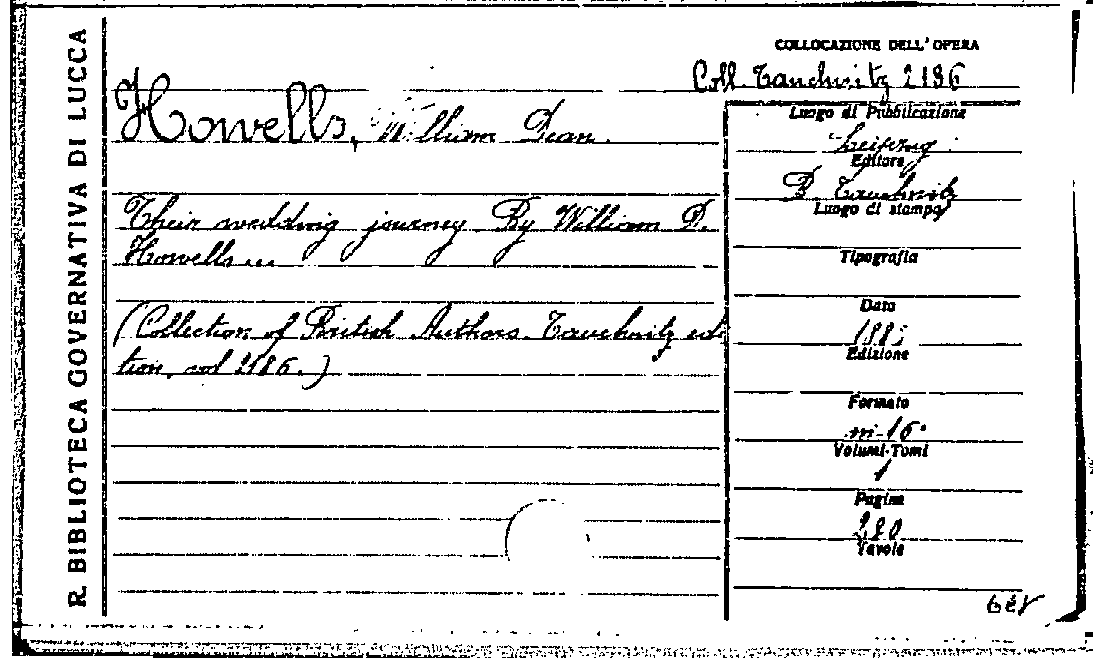 R. BIBLIOTECA GOVERNATIVA DI LUCCA
COLLOCAZIONE DELL'OPERA
Coll. Tauchnitz 2186
Howells, William Dean.
Their wedding journey By William D.
Howells...
(Collection of British Authors. Tauchnitz edi
tion, vol 2186.)
Luogo di Pubblicazione
Leipzig
Editore
B. Tauchnitz
Luogo di stampa
Tipografia
Data
Edizione
Formato
in-16.
Volumi-Tomi
1
Pagine
280
Tavole